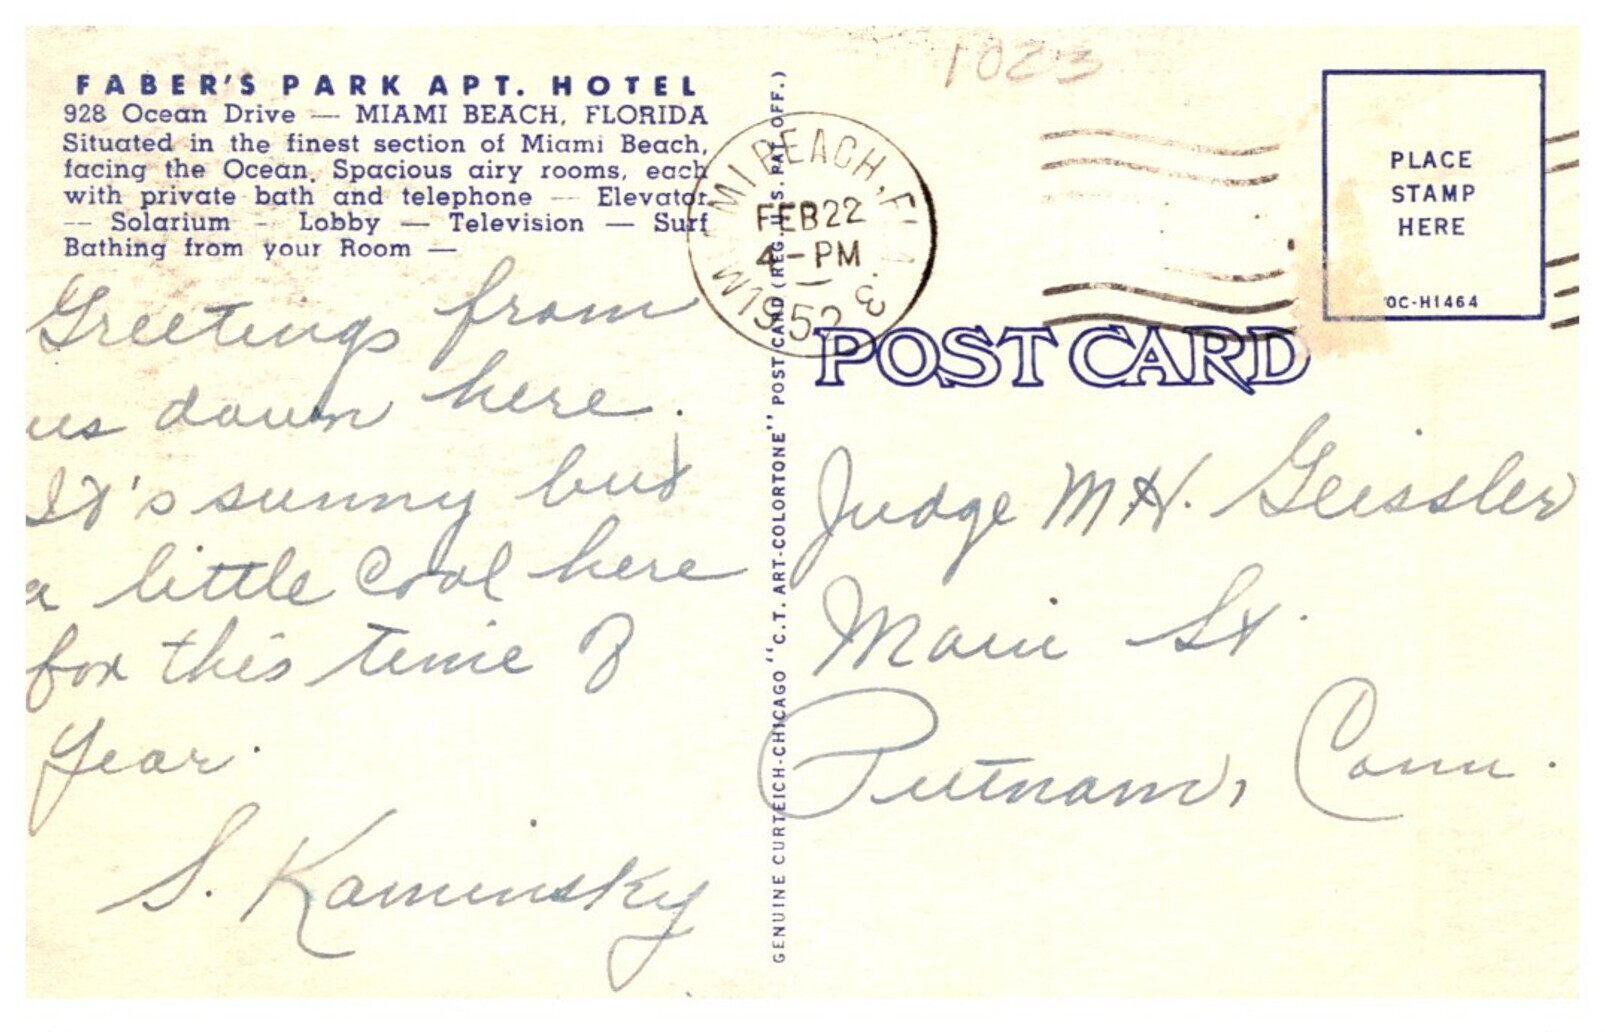 1023
FABER'S PARK APT. HOTEL
928 Ocean Drive — MIAMI BEACH, FLORIDA
Situated in the finest section of Miami Beach,
facing the Ocean. Spacious airy rooms, each
with private bath and telephone — Elevator
— Solarium — Lobby — Television — Surf
Bathing from your Room —
Greetings from
us down here.
It's sunny but
a little Cool here
for this time of
Year.
S. Kaminsky
GENUINE CURTEICH-CHICAGO "C.T. ART-COLORTONE" POST CARD (REG. U.S. PAT. OFF.)
MIAMI BEACH, FLA. 3
FEB 22
4-PM
1952
PLACE
STAMP
HERE
OC-H1464
POST CARD
Judge M H. Geissler
Main St.
Putnam, Conn.